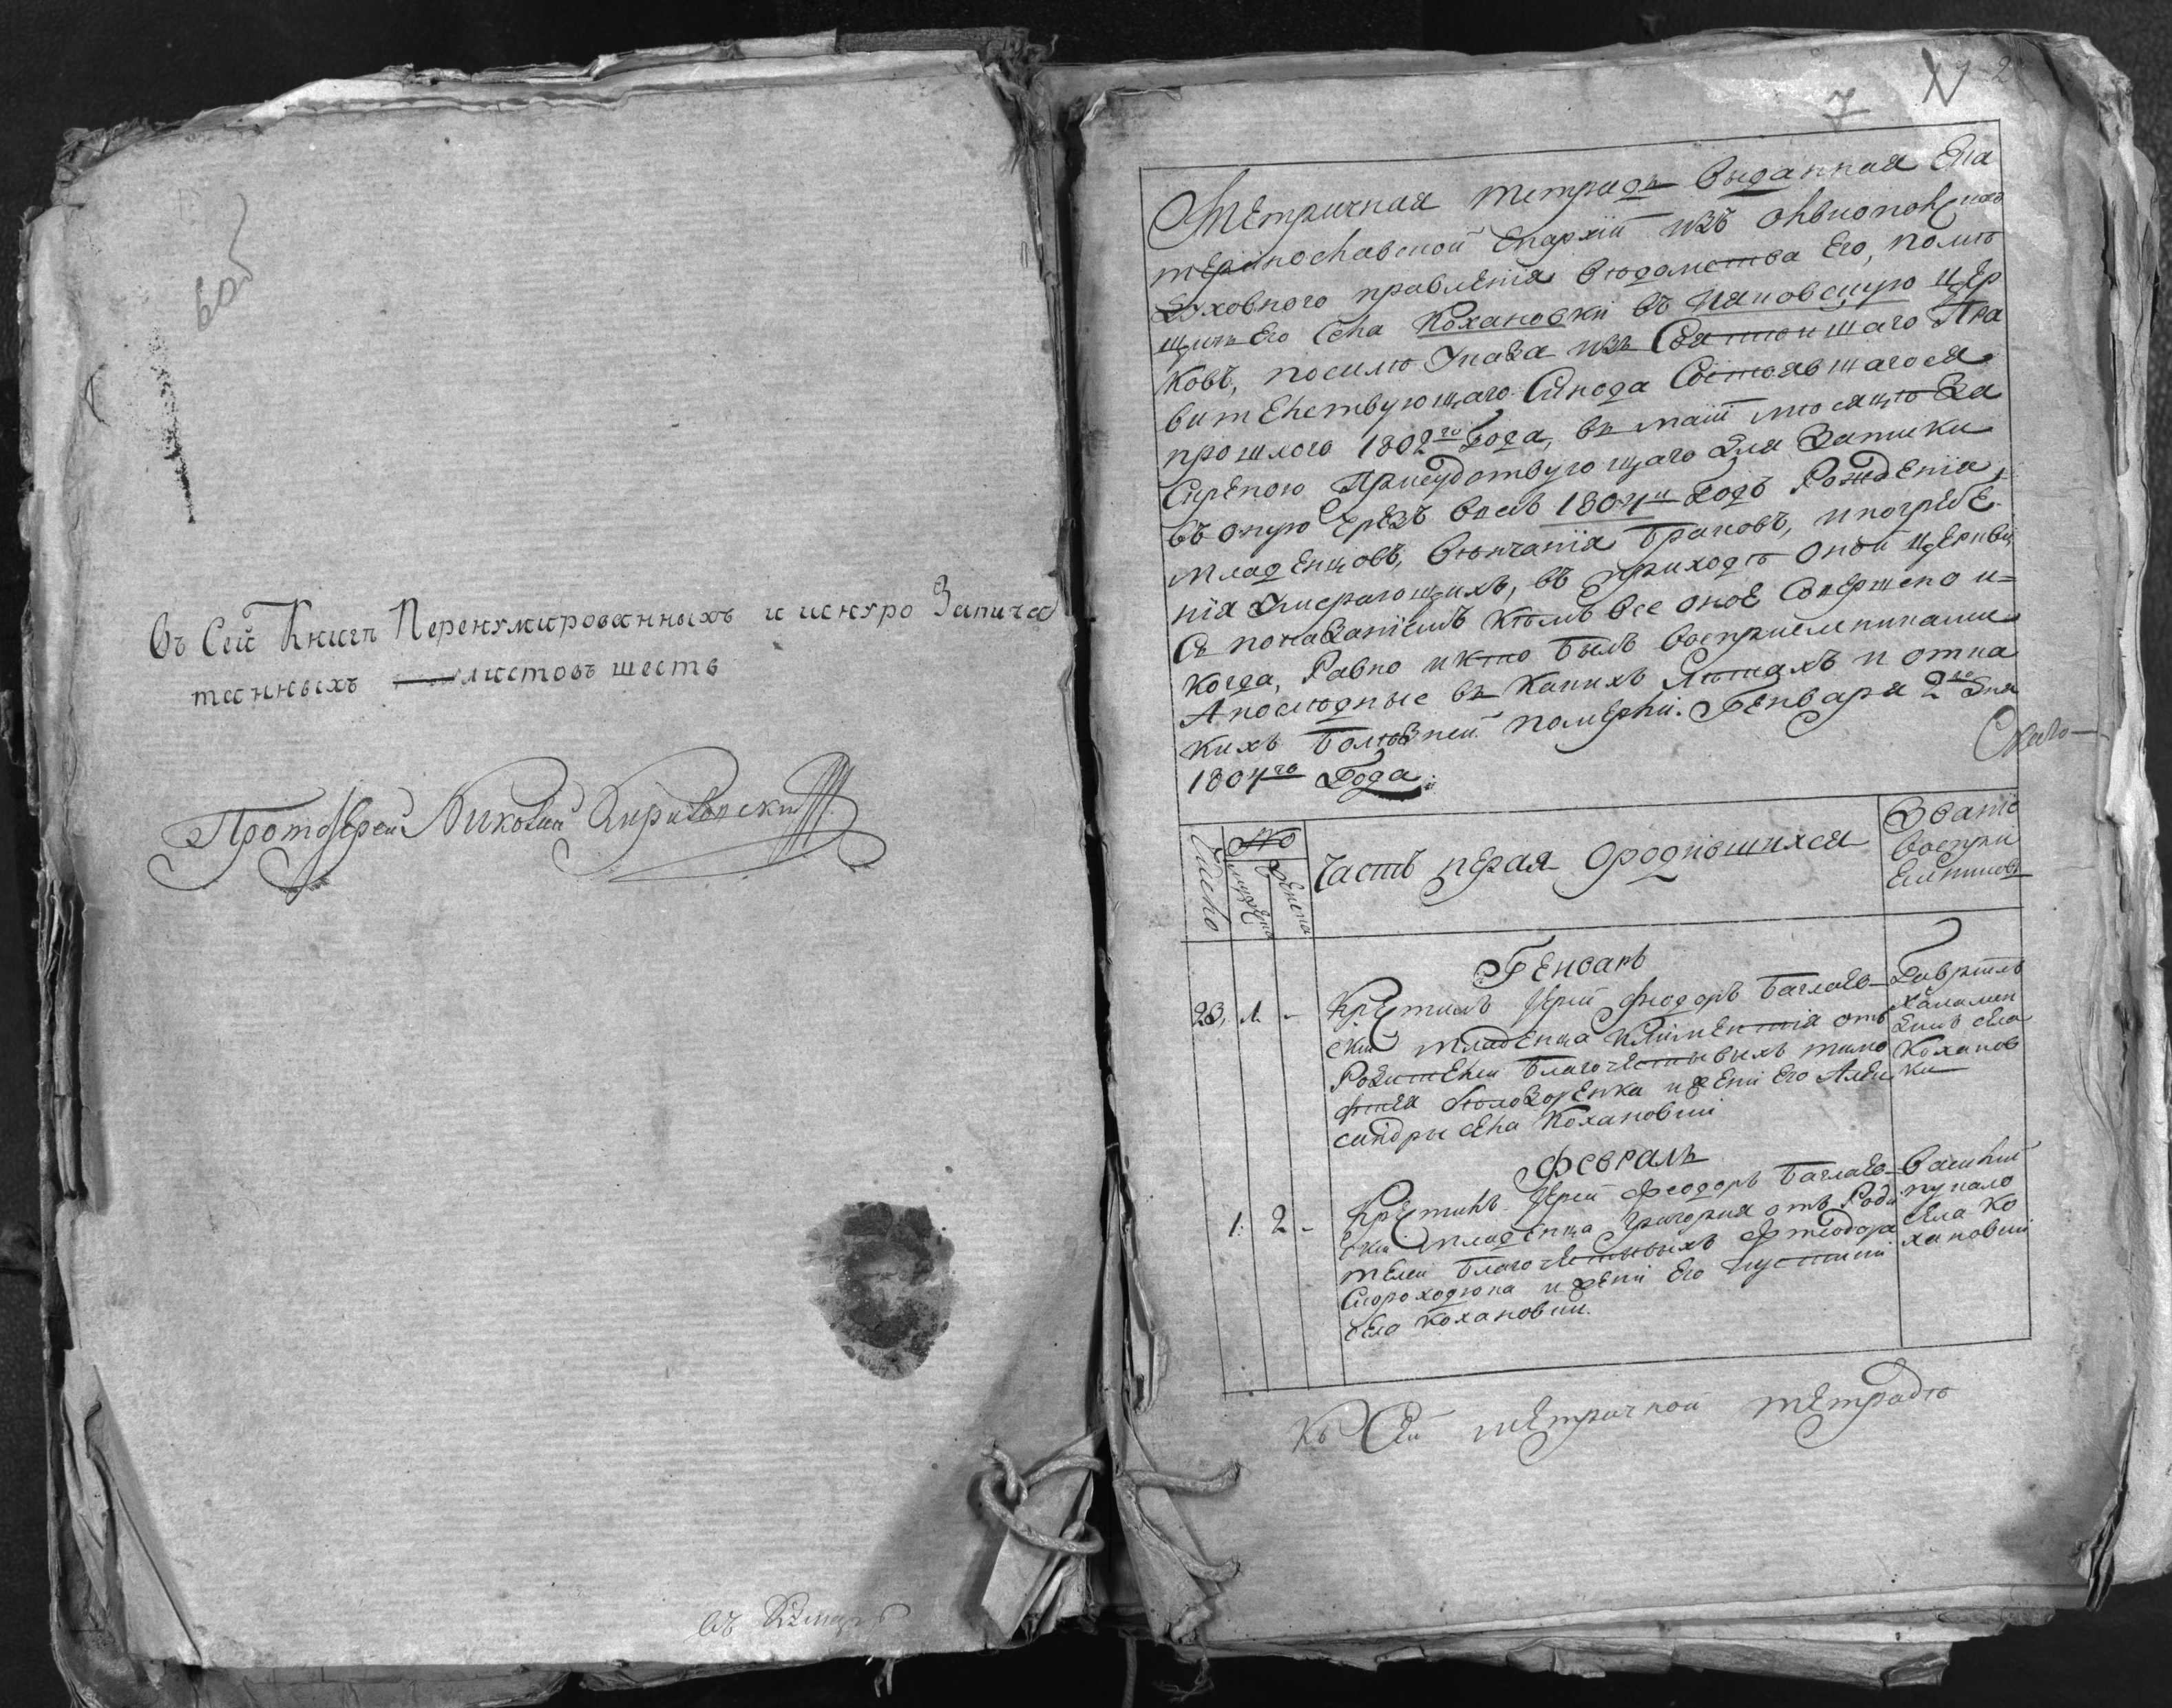 Въ Сей Книгѣ Перенумированныхъ и шнуро Запеча
танныхъ листовъ шесть
Протоіерей
въ
7
2
Метричная тетрадь выданная Ека
теринославской Епархіи изъ
Духовного правленія вѣдомства Его, помѣ
щичьего села Кохановки въ цер
ковь, по силѣ Указа изъ Святѣйшаго Пра
вительствующаго Синода Состоявшагося
прошлого 1802го Года, въ маіи мѣсяцѣ За
Скрепою Присудствующаго для Записки
въ оную чрезъ весь 1804й Годъ Рожденія
младенцовъ, вѣнчанія браковъ, и погребе
нія умерающихъ, въ приходѣ оной церкви
Съ показаніемъ кѣмъ все оное Совершено и
когда, Равно и кто былъ воспріемниками
А послѣдные въ какихъ Лѣтахъ и отъ ка
кихъ болѣзней померли. Генваря 2го дня
1804го Года
Число
No
Мужеска
Женска
Часть перая ородившихся
Званіе
воспри
емниковъ
Генварь
23, 1 - Крестилъ Іерей Феодоръ Баглаев
скій младенца Климентія отъ
Родителей благочестивыхъ Тимо
фтея и жени Его Алек
сандры села Кохановки
Гавріилъ
села
Коханов
ки
Февраль
1. 2 - Крестилъ Іерей Феодоръ Баглаев
скій младенца Григория отъ Роди
телей благочестивыхъ Фтеодора
Скороходюка и жени Его
села Кохановки.
Василий
села Ко
хановки
Къ Сей метричной тетрадѣ